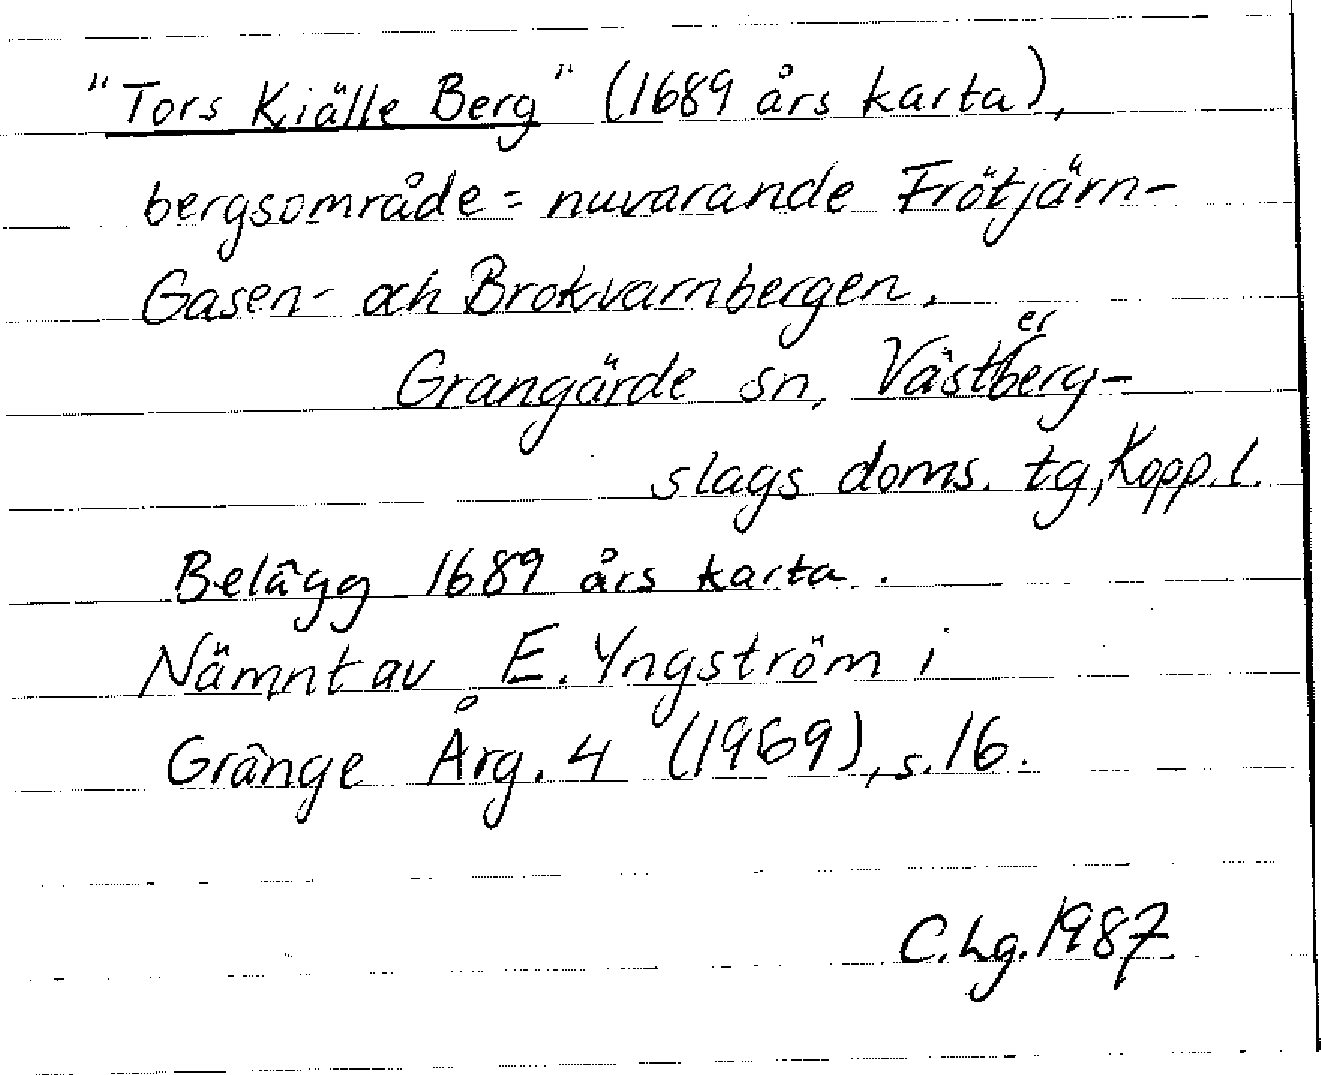 "Tors Kiälle Berg" (1689 års karta),
bergsområde = nuvarande Frötjärn-
Gasen- och Brokvarnbergen.
Grangärde sn, Västerberg-
slags doms. tg, Kopp. l.
Belägg 1689 års karta.
Nämnt av E. Yngström i
Gränge Årg. 4 (1969), s. 16.
C. Lg. 1987